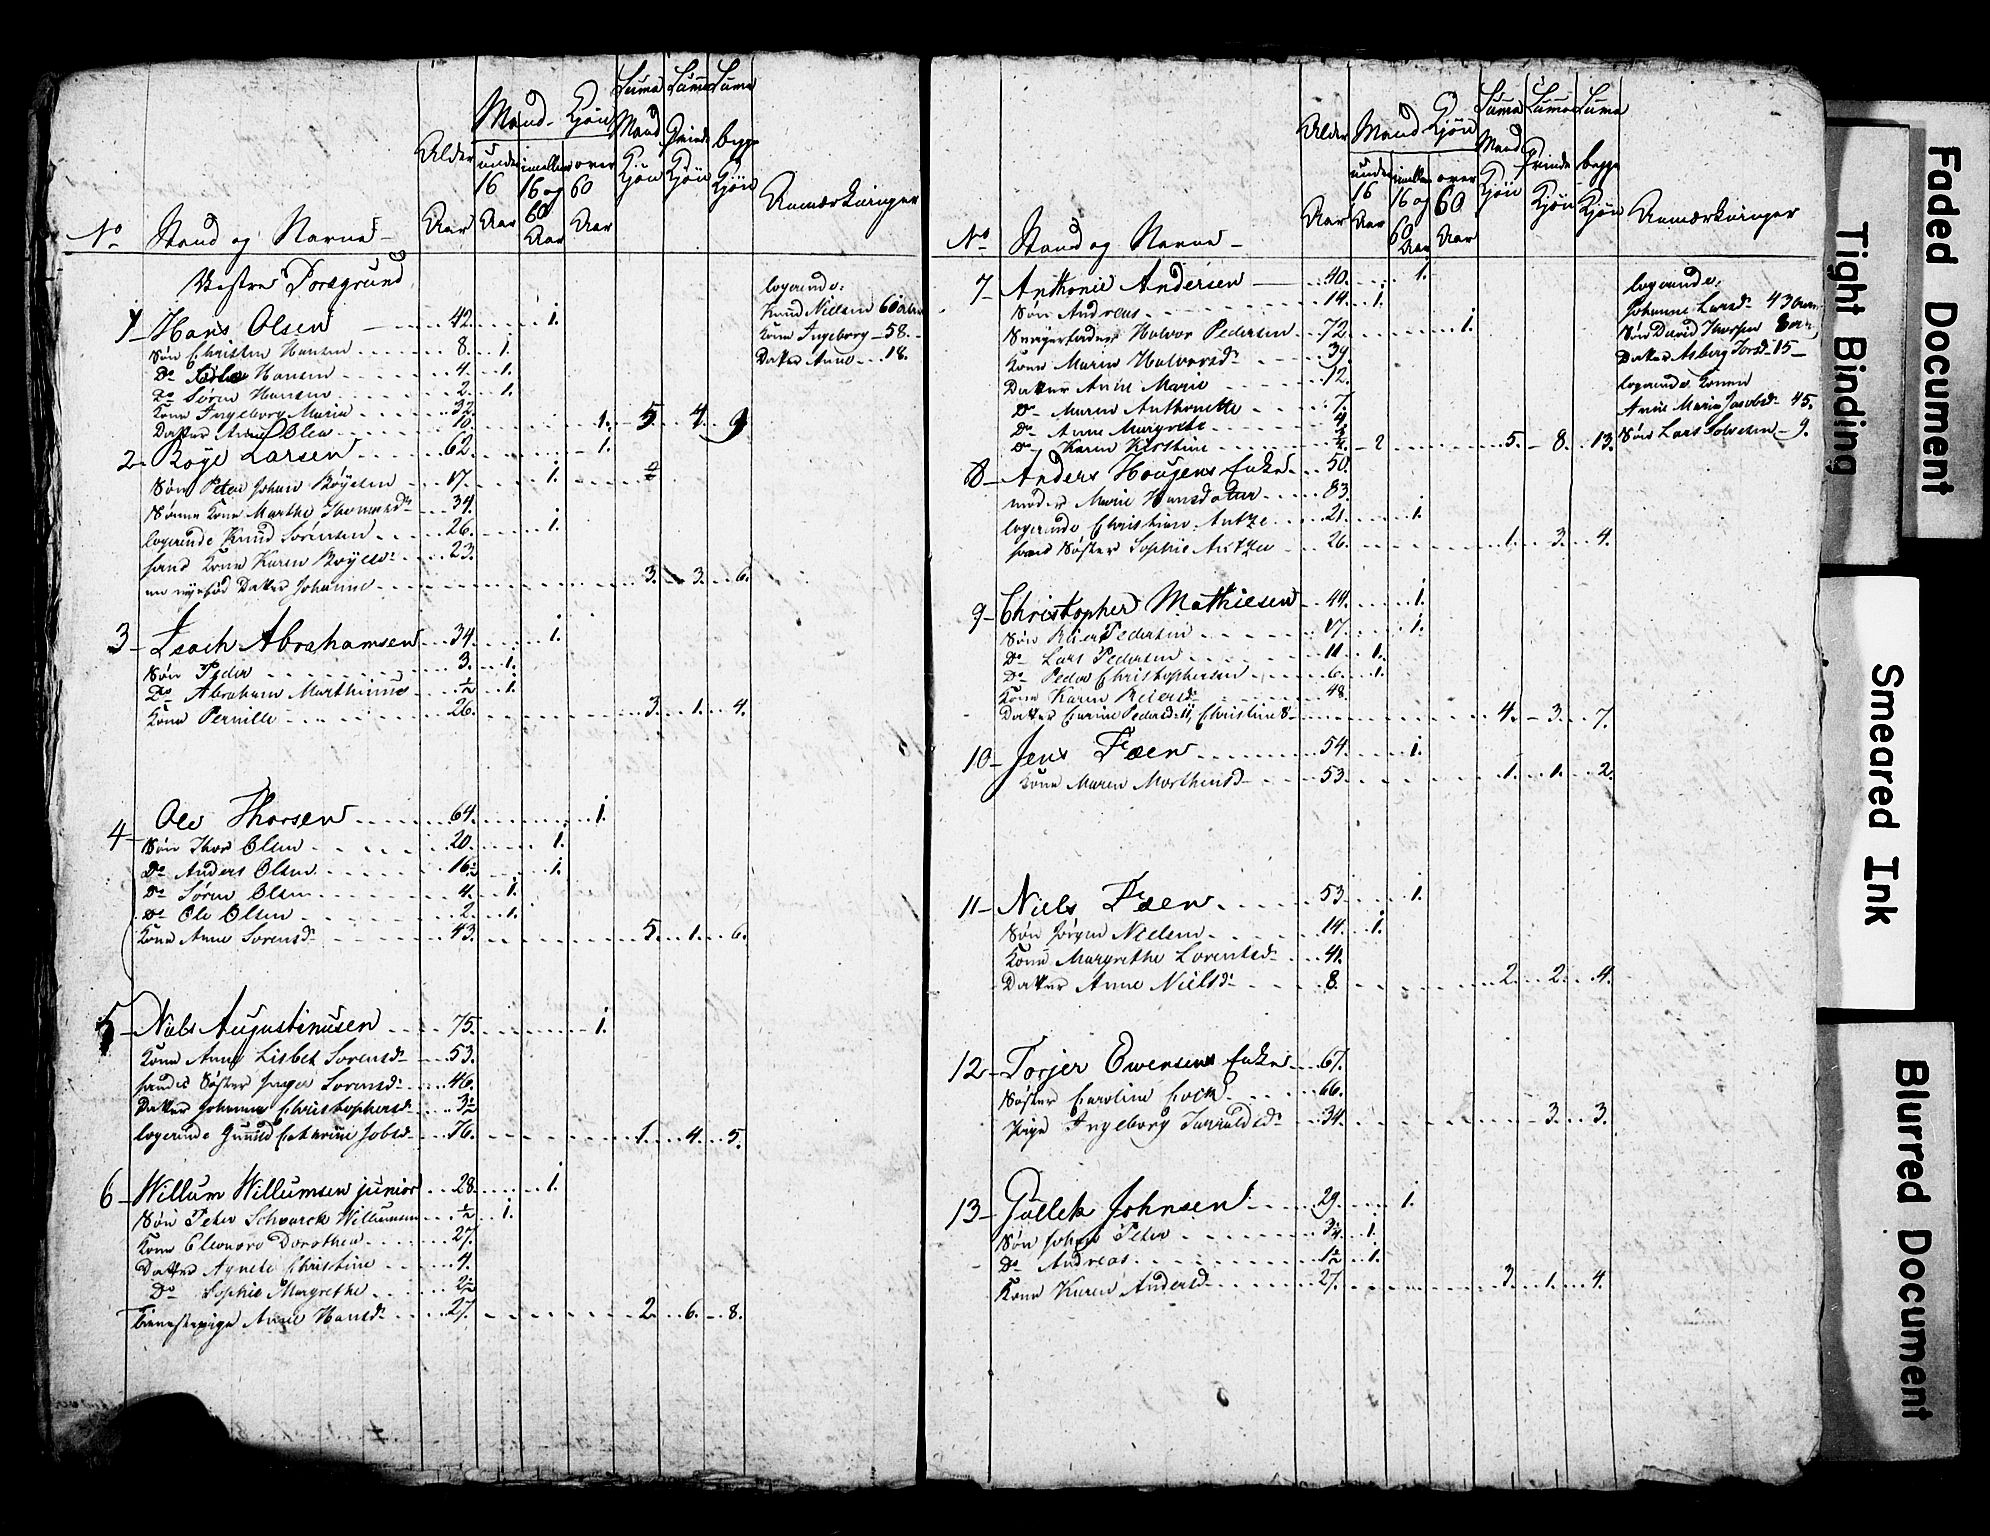 No Stand og Navne Alder Aar Mand Kjön under 16 Aar imellem 16 og 60 Aar over 60 Aar Suma Mand Kjön Suma Qvinde Kjön Suma begge Kjön Anmærkninger
Vestre Porsgrund
1 Hans Olsen 42. 1.
Søn Christen Hansen 8. 1.
Do Hansen 4. 1.
Do Søren Hansen 2. 1.
Kone Ingeborg Maria 32. 1. 5. 4. 9
Datter Anne Olea 10.
logerende:
Knud Nielsen 60
Kone Ingeborg 58.
Datter Anne 18.
2 Röye Larsen 62. 1.
Søn Peter Johan Röyesen 17. 1.
Sønne Kone Marthe Thomasdr 34.
logerende Knud Sörensen 26. 1.
hans Kone Karen Röyesdr 23.
en nyefød Datter Johanne 3. 3. 6.
3 Isach Abrahamsen 34. 1.
Søn Peder 3. 1.
Do Abraham Marthinus ½ 1.
Kone Pernille 26. 3. 1. 4.
4 Ole Thorsen 64. 1.
Søn Thor Olsen 20. 1.
Do Anders Olsen 16½ 1.
Do Søren Olsen 4. 1.
Do Ole Olsen 2. 1.
Kone Anne Sorensdr 43. 5. 1. 6.
5 Niels Augustinusen 75. 1.
Kone Anne Lisbet Sorensdr 53.
hendes Søster Inger Sorensdr 46.
Datter Johanne Christophersdr 3½
logerende Gunild Catharine Jobsdr 76. 1. 4. 5.
6 Willum Willumsen junior 28. 1.
Søn Peter Schvarck Willumsen ½ 1.
Kone Eleonora Dorothea 27.
Datter Agnete Christine 4.
Do Sophie Margrethe 2½
Tienestepige Anne Hansdr 27. 2. 6. 8.
No Stand og Navne Alder Aar Mand Kjön under 16 Aar imellem 16 og 60 Aar over 60 Aar Suma Mand Kjön Suma Qvinde Kjön Suma begge Kjön Anmærkninger
7 Anthonie Andersen 40. 1.
Søn Andreas 14. 1.
Svigerfader Halvor Pedersen 72. 1.
Kone Maren Halvorsdr 39.
Datter Anne Marie 12.
Do Maren Anthonette 7.
Do Anne Margrete 4.
Do Karen Kirstine ¼ 2 5. 8. 13.
logerende:
Johanne Larsdr 43
Søn David Thorsen 8
Datter Asberg Torsdr 15
logerende Konen
Anne Maria Jacobsdr 45.
Søn Lars 9.
8 Anders Hougens Enke 50.
moder Marie Hansdatter 83.
logerende Christian Antze 21. 1.
hans Søster Sophie Antzen 26. 1. 3. 4.
9 Christopher Mathiesen 44. 1.
Søn Reier Pedersen 17. 1.
Do Lars Pedersen 11. 1.
Do Peder Christophersen 6. 1.
Kone Karen Reiersdr 48.
Datter Carine Pedersdr 11, Christine 8 4. 3. 7.
10 Jens Fæen 54. 1.
Kone Maren Marthensdr 53. 1. 1. 2.
11 Niels Fæen 53 1.
Søn Jörgen Nielsen 14. 1.
Kone Margrethe Lorentsdr 41.
Datter Anne Nielsdr 8. 2. 2. 4.
12 Torjer Ewensens Enke 67.
Søster Caroline Cock 66.
Pige Ingeborg Jarraldsdr 34. 3. 3.
13 Gullek Johnsen 29. 1.
Søn Johan Peter 3¼ 1.
Do Andreas 1½ 1.
Kone Karen Andersdr 27. 3. 1. 4.
Faded Document
Tight Binding
Smeared Ink
Blurred Document